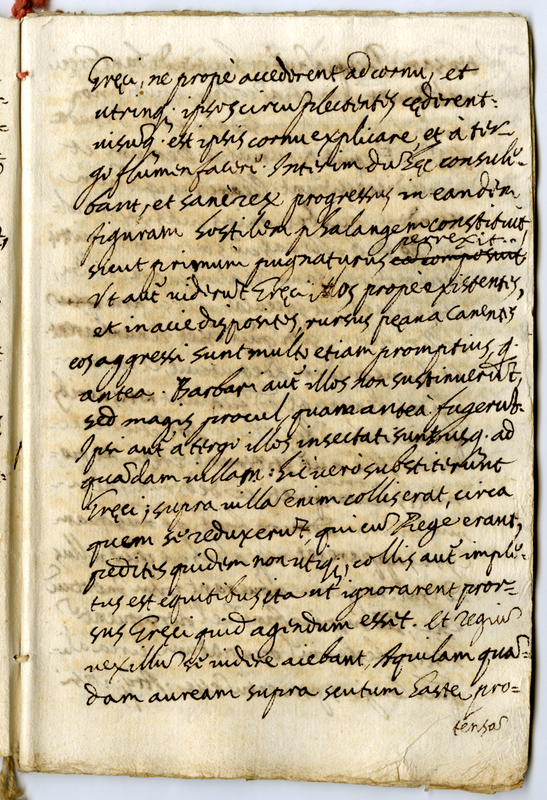 Gręci, ne propè accederent ad cornu, et
utrinq. ipsos circũflectentes cęderent:
uisumq. est ipsis cornu explicare, et à ter
go flumen facere. Interim dũ hęc consule-
bant, et sanè rex progressus in eandẽ
figuram hostilem phalangem constituit
sicut primùm pugnaturus perrexit.
Vt aũt uiderũt Gręci illos prope existentes,
et in acie dispositos, rursus pęana canentes
eos aggressi sunt multo etiam promptius, q̃
antea. Barbari aũt illos non sustinuerũt,
sed magis procul, quam anteà fugerũt.
Ipsi aũt à tergo illos insectati sunt usq. ad
quãdam uillam: hic uero substiterũnt
Gręci; supra uillã enim collis erat, circa
quem se reduxerũt, qui cũ Rege erant,
pedites quidem non utiq., collis aũt imple-
tus est equitibus ita ut ignorarent pror-
sus Gręci quid agendum esset. Et regiũ
uexillũ se uidere aiebant, Aquilam quã-
dam auream supra scutum haste pro-
tensã